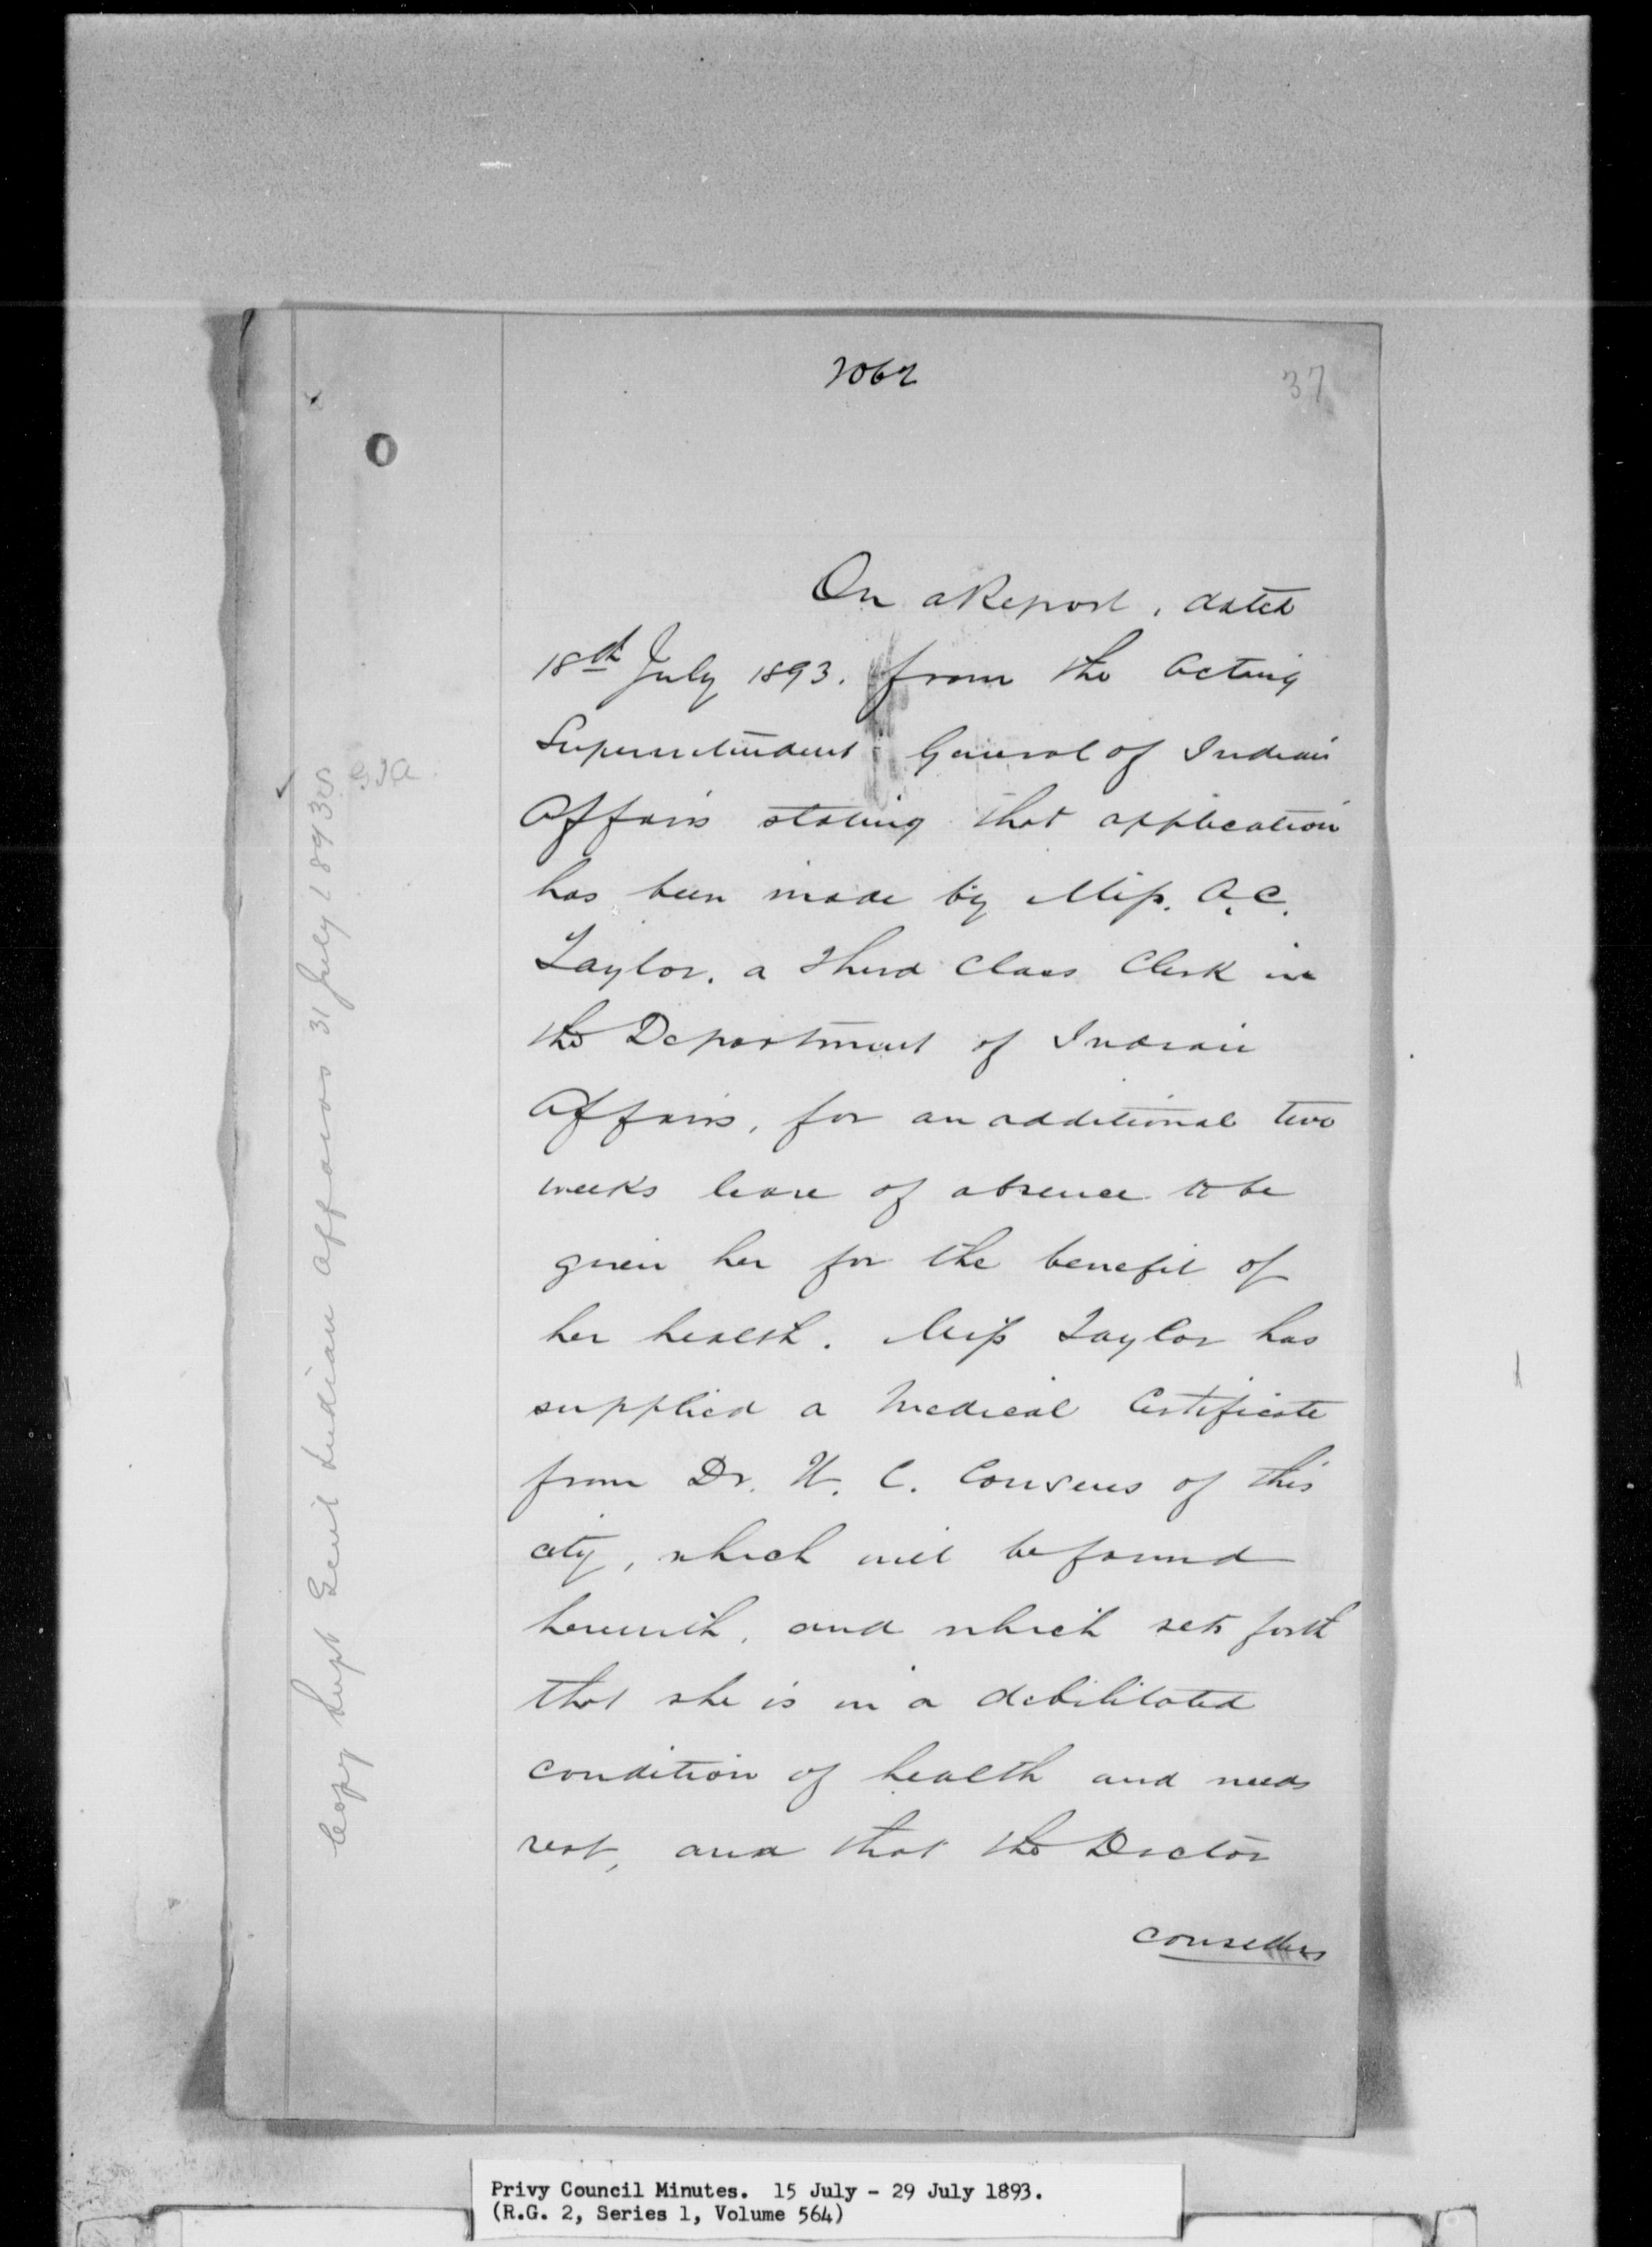 2062
37
On a Report, dated
18th July 1893. from the Acting
Superintendent General of Indian
Affairs stating that application
has been made by Miss. A.C.
Taylor, a Third Class Clerk in
the Department of Indian
Affairs, for an additional two
weeks leave of absence to be
given her for the benefit of
her health. Miss Taylor has
supplied a Medical Certificate
from Dr. H. C. Cousens of this
city, which will be found
herewith, and which sets forth
that she is in a debilitated
condition of health and needs
rest, and that the Doctor
considers
Copy Supt Genl Indian Affairs 31 July 1893
Privy Council Minutes. 15 July - 29 July 1893.
(R.G. 2, Series 1, Volume 564)